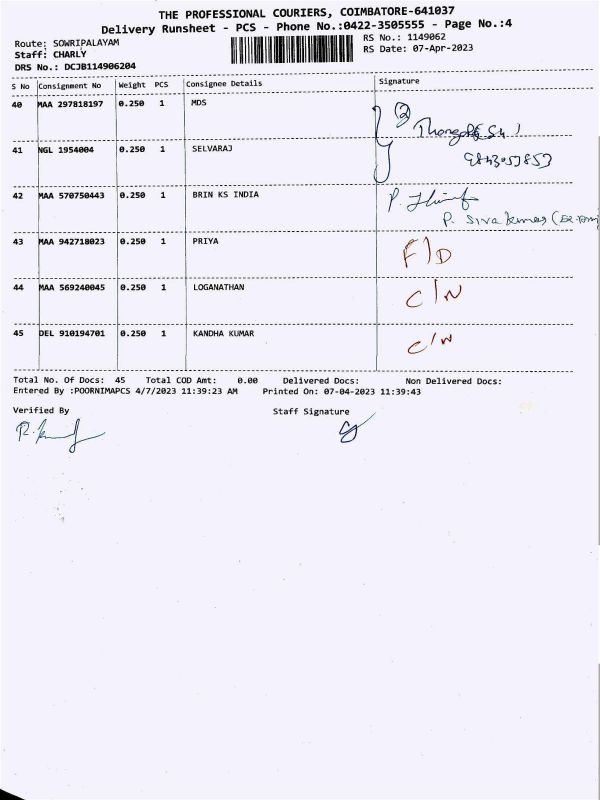 THE PROFESSIONAL COURIERS, COIMBATORE-641037
Delivery Runsheet - PCS - Phone No.:0422-3505555 - Page No.:4
Route: SOWRIPALAYAM
RS No.: 1149062
Staff: CHARLY
RS Date: 07-Apr-2023
DRS No.: DCJB114906204
S No Consignment No Weight PCS Consignee Details Signature
40 MAA 297818197 0.250 1 MDS
2
41 NGL 1954004 0.250 1 SELVARAJ
42 MAA 570750443 0.250 1 BRIN KS INDIA
P. Siva kumar
43 MAA 942718023 0.250 1 PRIYA F/D
44 MAA 569240045 0.250 1 LOGANATHAN C/N
45 DEL 910194701 0.250 1 KANDHA KUMAR C/N
Total No. Of Docs: 45 Total COD Amt: 0.00 Delivered Docs: Non Delivered Docs:
Entered By :POORNIMAPCS 4/7/2023 11:39:23 AM Printed On: 07-04-2023 11:39:43
Verified By Staff Signature